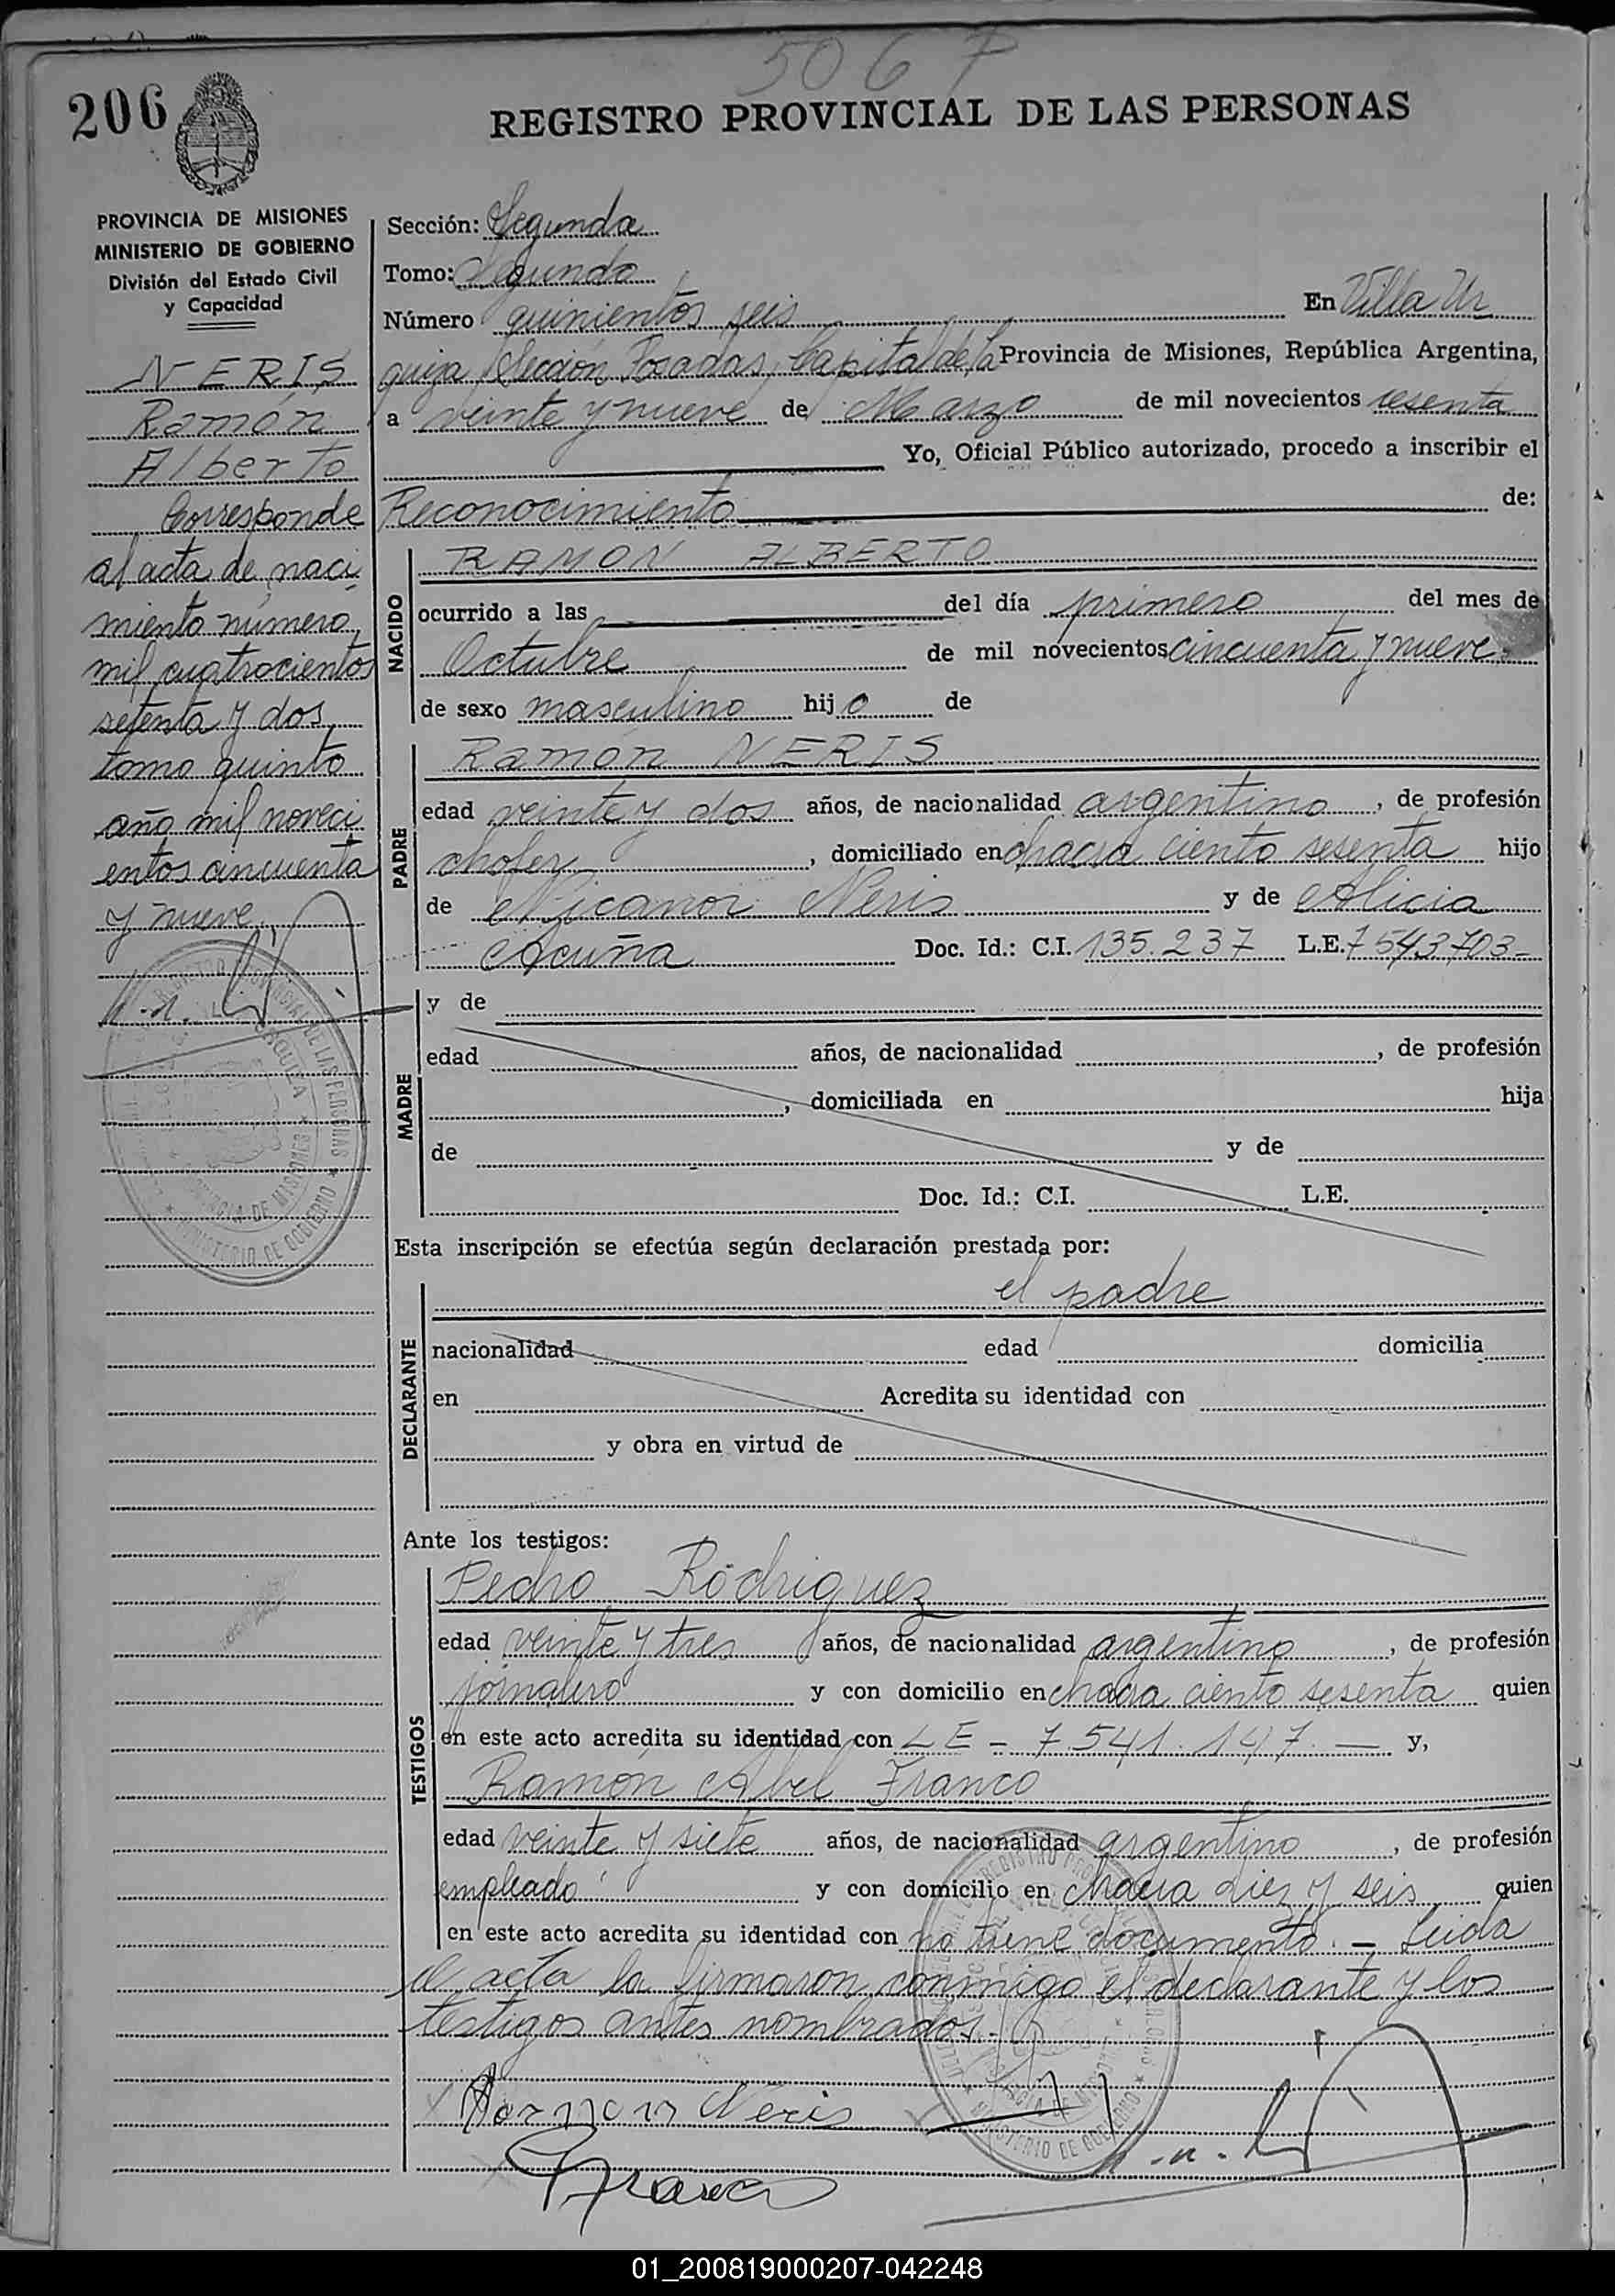 5067
206
REGISTRO PROVINCIAL DE LAS PERSONAS
PROVINCIA DE MISIONES
MINISTERIO DE GOBIERNO
División del Estado Civil
y Capacidad
NERIS
Ramón
Alberto
Corresponde
al acta de naci
miento número
mil cuatrocientos
setenta y dos,
tomo quinto
año mil noveci
entos cincuenta
y nueve.
Sección: Segunda
Tomo: Segundo
Número quinientos seis En Villa Ur
quiza, Sección Posadas, Capital de la Provincia de Misiones, República Argentina,
a veinte y nueve de Marzo de mil novecientos sesenta
Yo, Oficial Público autorizado, procedo a inscribir el
Reconocimiento de:
NACIDO
RAMON ALBERTO
ocurrido a las del día primero del mes de
Octubre de mil novecientos cincuenta y nueve
de sexo masculino hijo de
PADRE
Ramón NERIS
edad veinte y dos años, de nacionalidad argentino, de profesión
chofer, domiciliado en chacra ciento sesenta hijo
de Nicanor Neris y de Alicia
Acuña Doc. Id.: C.I. 135.237 L.E. 7543703-
MADRE
y de
edad años, de nacionalidad , de profesión
, domiciliada en hija
de y de
Doc. Id.: C.I. L.E.
Esta inscripción se efectúa según declaración prestada por:
DECLARANTE
el padre
nacionalidad edad domicilia
en Acredita su identidad con
y obra en virtud de
Ante los testigos:
TESTIGOS
Pedro Rodriguez
edad veinte y tres años, de nacionalidad argentino, de profesión
jornalero y con domicilio en chacra ciento sesenta quien
en este acto acredita su identidad con LE - 7.541.147.— y,
Ramón Abel Franco
edad veinte y siete años, de nacionalidad argentino, de profesión
empleado y con domicilio en chacra diez y seis quien
en este acto acredita su identidad con no tiene documento. — Leida
el acta la firmaron conmigo el declarante y los
testigos antes nombrados.-
Ramon Neris
Franco
01_200819000207-042248